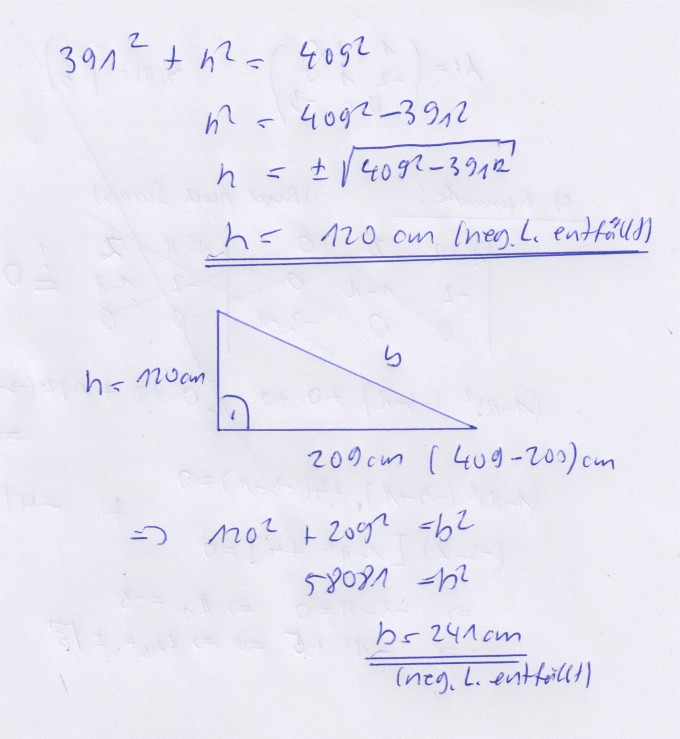 391² + h² = 409²
h² = 409² - 391²
h = ± √409² - 391²
h = 120 cm (neg. L. entfällt)
h = 120cm
b
209cm (409-200)cm
⇒ 120² + 209² = b²
58081 = b²
b = 241cm
(neg. L. entfällt)